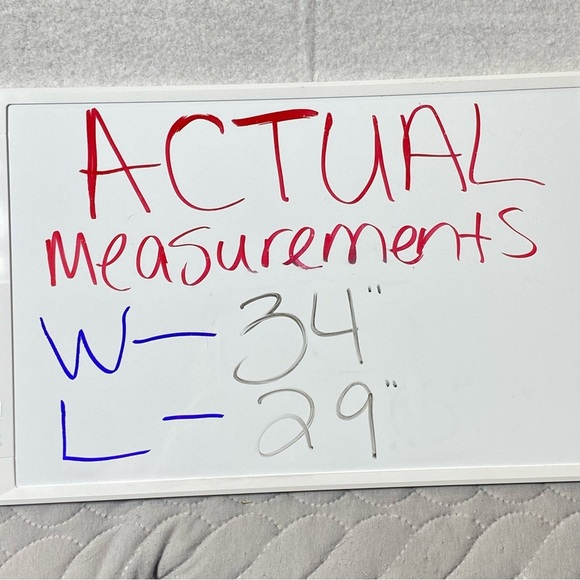 ACTUAL
measurements
W- 34"
L- 29"